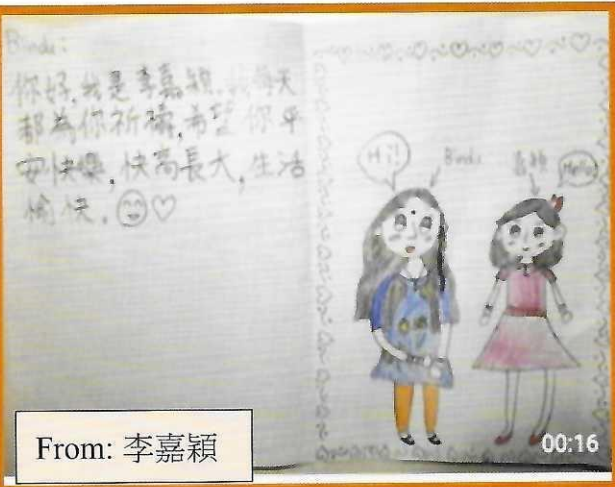 Bindu:
你好,我是李嘉穎,我每天
都為你祈禱,希望你平
安快樂,快高長大,生活
愉快,
Hi!
Bindu
嘉穎
Hello!
From: 李嘉穎
00:16